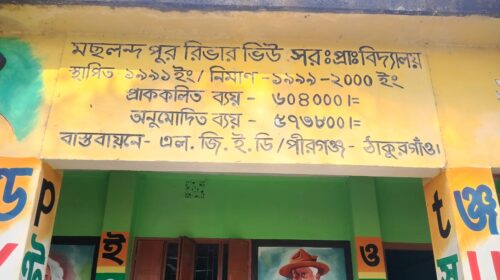 মছলন্দ পুর রিভার ভিউ সরঃপ্রাঃবিদ্যালয়
স্থাপিত ১৯৯১ইং/ নিমাণ -১৯৯৯ -২০০০ ইং
প্রাককলিত ব্যয় - ৬০৪০০০।=
অনুমোদিত ব্যয় - ৫৭৩৮০০।=
বাস্তবায়নে- এল. জি. ই. ডি/পীরগঞ্জ - ঠাকুরগাঁও।
ড p
t ঞ্জ
ই ও